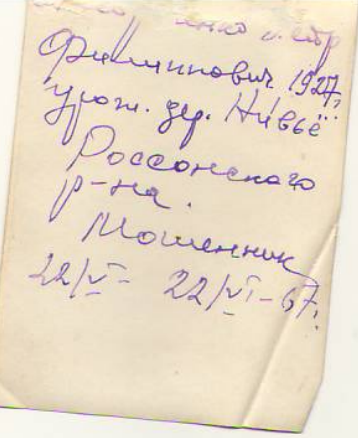 Петр
Филиппович 1927г.
урож. дер. Нивьё
Россонского
р-на.
Мошенник
22/V - 22/VI-67г.